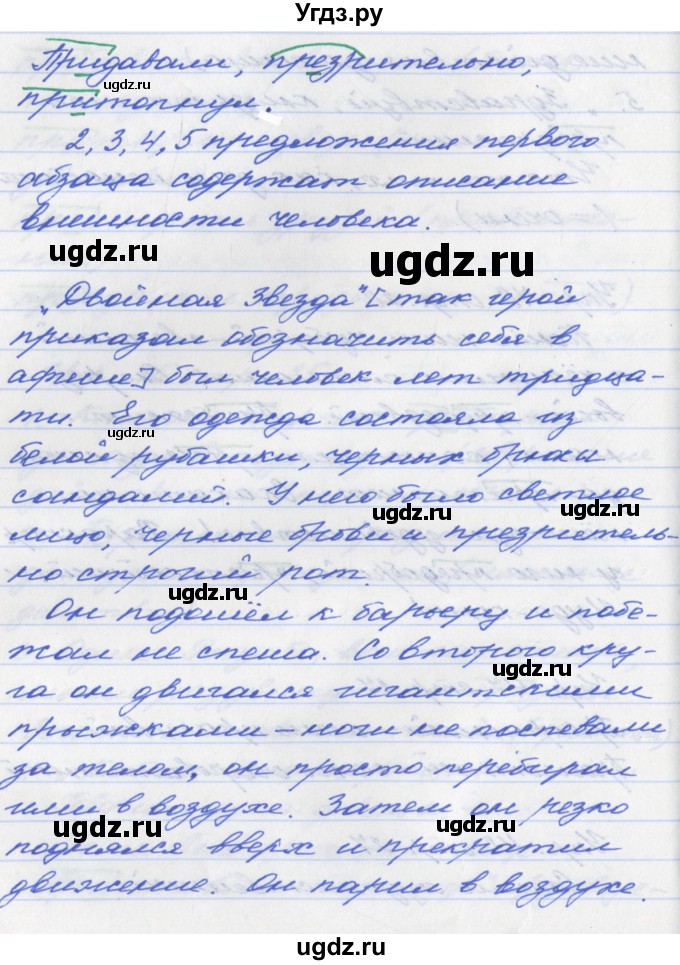 Угдз.ру
Придавали, презрительно,
ugdz.ru
притопнул.
ugdz.ru
2, 3, 4, 5 предложения первого
абзаца содержат описание
внешности человека.
ugdz.ru
ugdz.ru
„Двойная Звезда" [так герой
приказал обозначить себя в
афише] был человек лет тридца-
ти. Его одежда состояла из
ugdz.ru
белой рубашки, черных брюк и
сандалий. У него было светлое
ugdz.ru
ugdz.ru
лицо, черные брови и презритель-
но строгий рот.
ugdz.ru
Он подошёл к барьеру и побе-
жал не спеша. Со второго кру-
ugdz.ru
га он двигался гигантскими
прыжками – ноги не поспевали
за телом, он просто перебирал
ими в воздухе. Затем он резко
ugdz.ru
ugdz.ru
поднялся вверх и прекратил
движение. Он парил в воздухе.
ugdz.ru